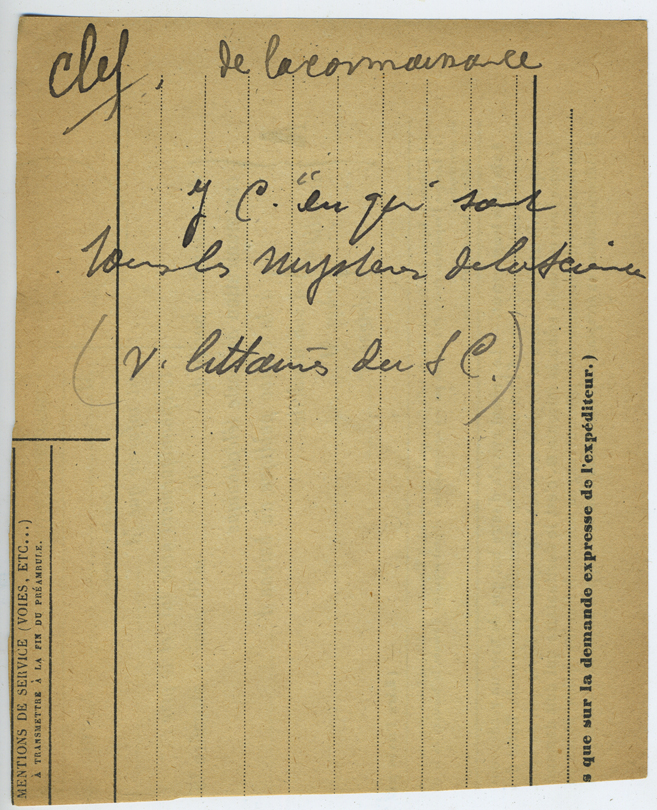 clef, de la connaissance
J C. "en qui" sont
tous les mystères de la Science
(v. littanies du S C.)
MENTIONS DE SERVICE (VOIES, ETC...)
A TRANSMETTRE À LA FIN DU PRÉAMBULE.
s que sur la demande expresse de l'expéditeur.)